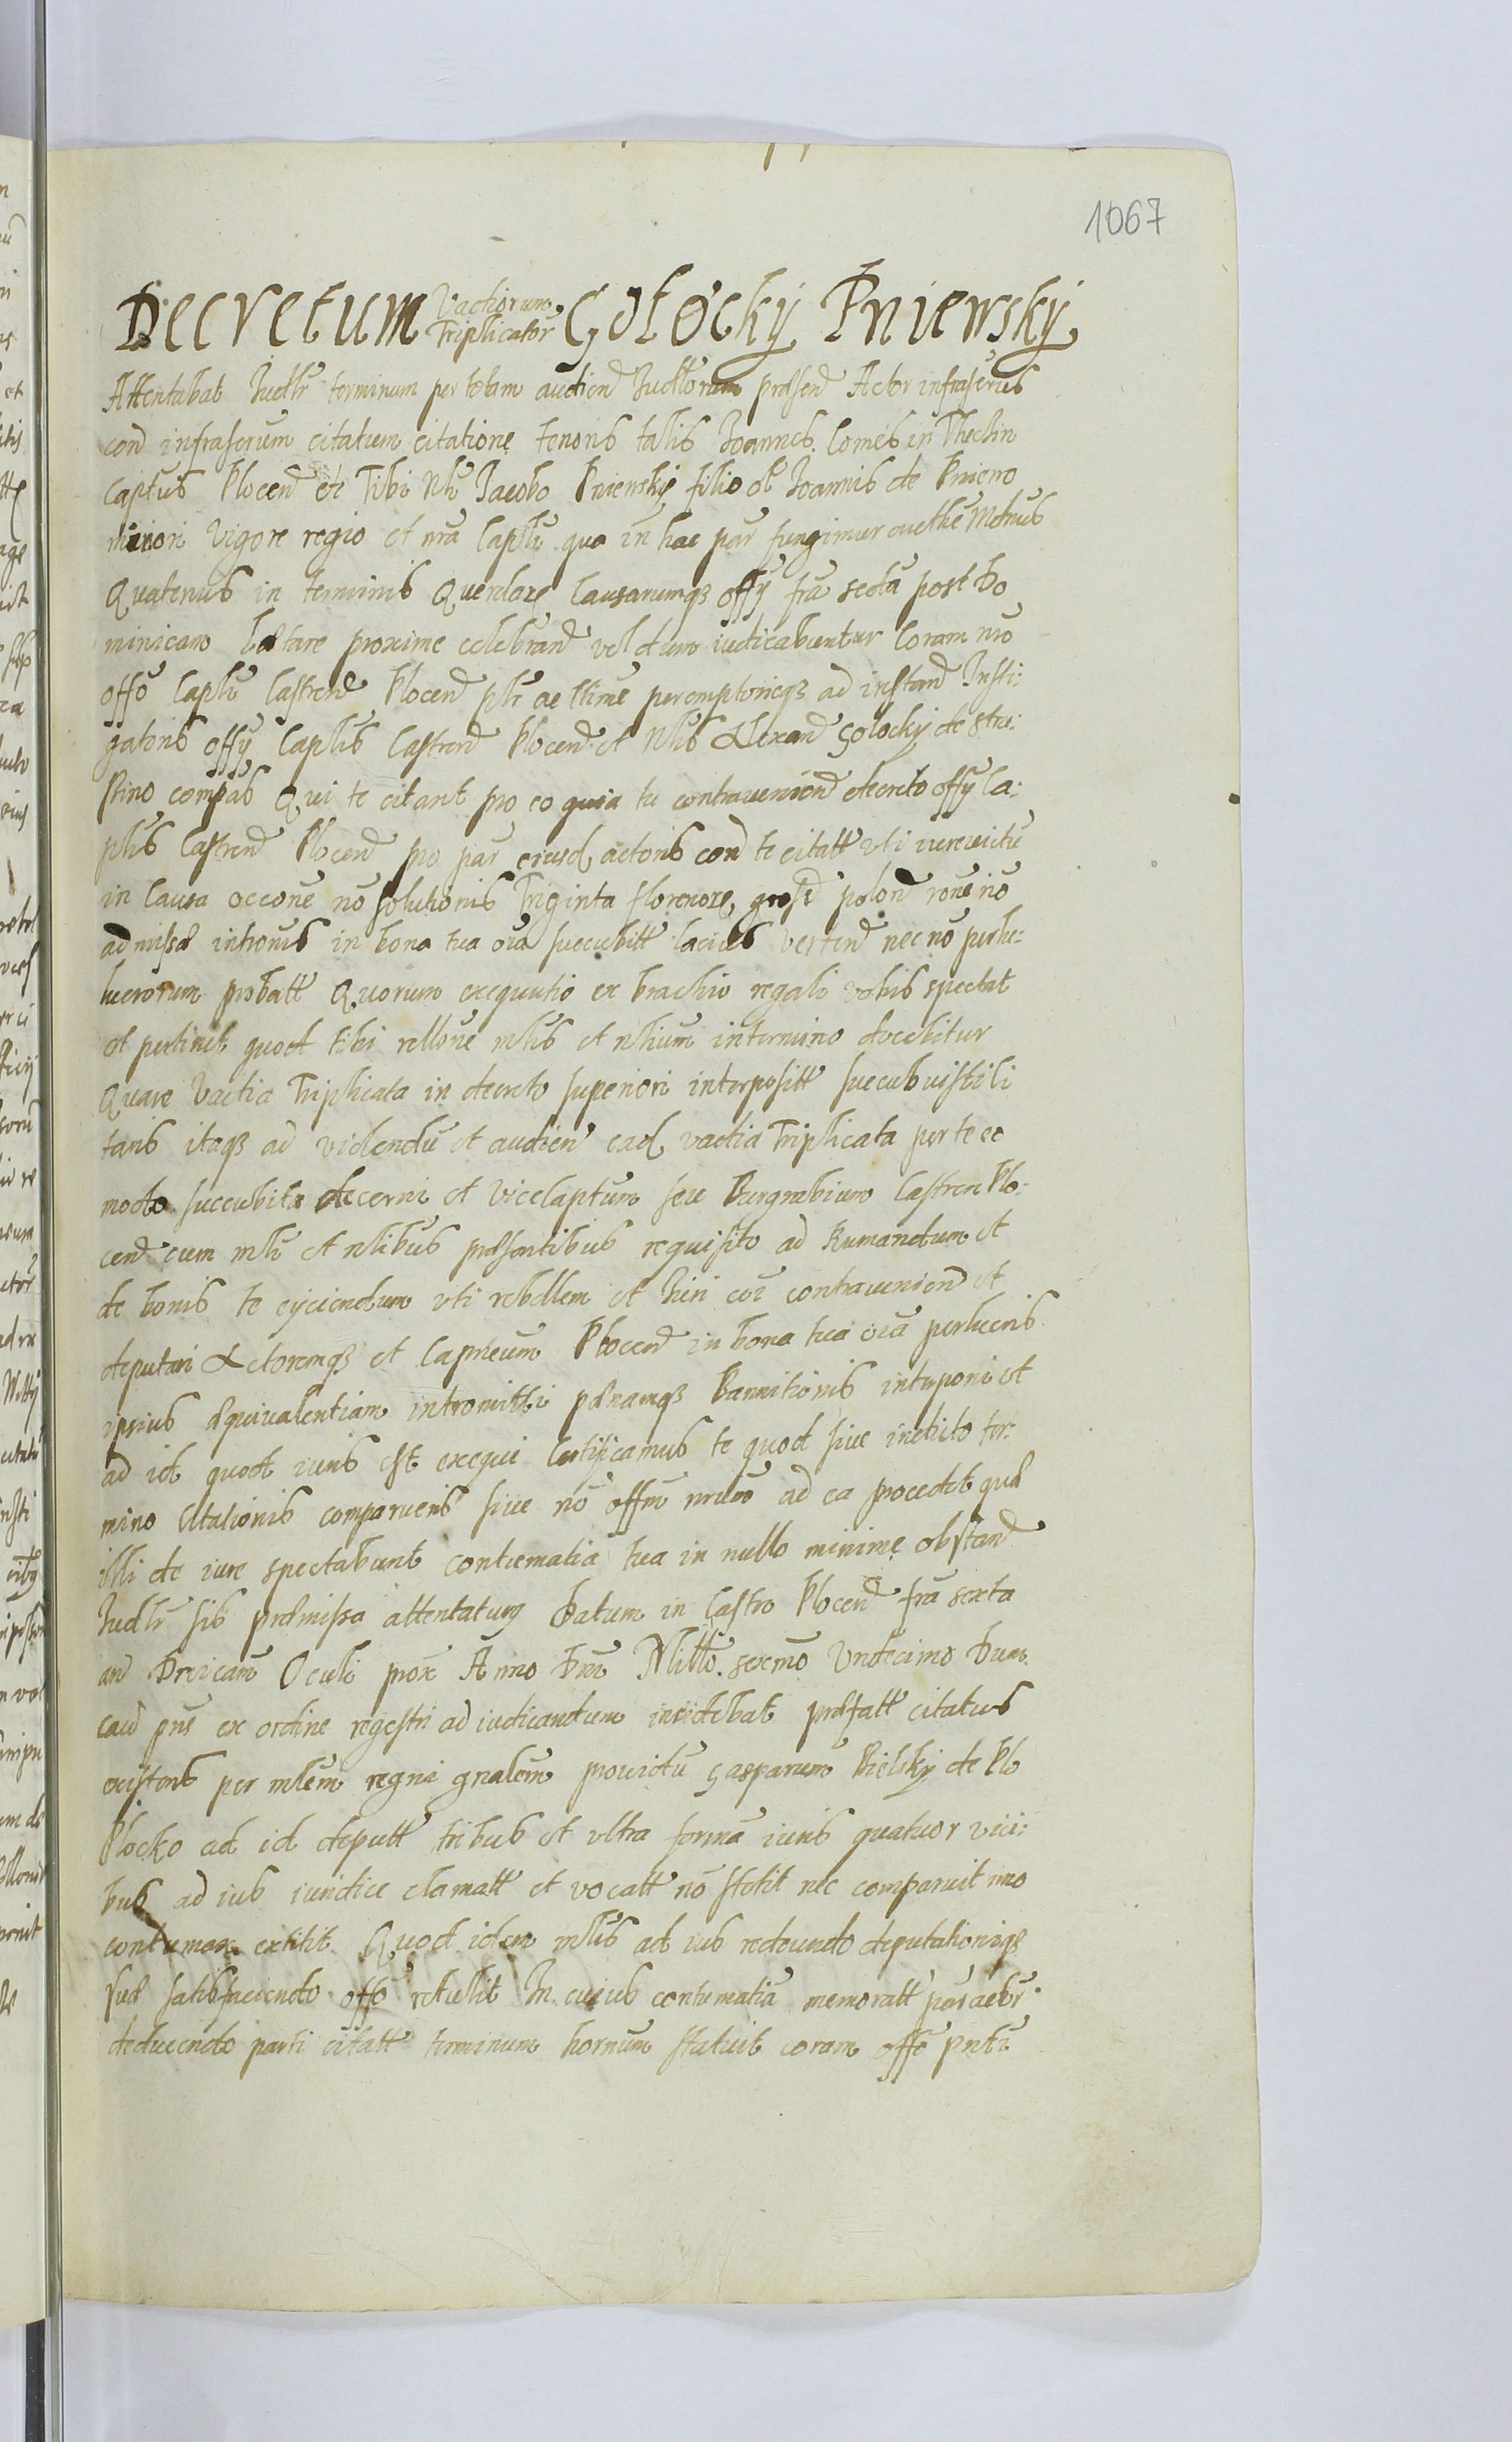 1067
Decretum Vadiorum Triplicator Gołocky Pniewsky
Attentabat Iudlr terminum per totam audien Iudltorum præsen Actor infrascrus
con infrascrum citatum citatione tenoris talis Ioannes Comes in Thečin
Captus Plocen etc Tibi Nli Iacobo Pniewsky filio ol Ioannis de Pniewo
minori Vigore regio et nra Capli qua in hac par fungimur aucthe Mdmus
Quatenus in terminis Querelarz Causarumqz offy fra sexta post Do
minicam Lætare proxime celebran vel dum iudicabuntur Coram nro
offo Capli Castren Plocen plr ac ltime peremptorieqz ad instan Insti:
gatoris offy Caplis Castren Plocen et Nlis Alexan Gołocky de Stru:
pino compas Qui te citant pro eo quia tu contravenien decreto offy Ca:
plis Castren Plocen pro par eiusd actoris con te citatt uti iurevictu
in Causa occone no solutionis Triginta florenorz gross polon rone no
admissæ intronis in bona tua oia succubitt lacius verten nec no perlu:
lucrorum probatt Quorum exequutio ex brachio regali nobis spectat
et pertinet quod tibi rellone mlis et nlium in termino docebitur
Quare Vadia Triplicata in decreto superiori interpositt succubuisti li
taris itaqz ad videndu et audien ead vadia Triplicata per te eo
modo succubita decerni et Vicecaptum seu Burgrabium Castren Plo:
cen cum mli et nlibus præsentibus requisito ad Rumandum et
de bonis te eyciendum uti rebellem et Iuri coi contravenien et
deputari Actoremqz et Capneum Plocen in bona tua oia perlucris
ipsius æquivalentiam intromitti pænamqz Bannitionis interponi et
ad id quod iuris est exequi Certificamus te quod sive in dicto ter:
mino Citationis comparueris sive no offm nrum ad ea procedet quæ
illi de iure spectabunt contumatia tua in nullo minime obstan
Iudlr sis præmissa attentaturus Datum in Castro Plocen fra sexta
an Dnicam Oculi prox Anno Dni Millo sexcmo Undecimo Dum
cau pns ex ordine regestri ad iudicandum incidebat præfatt citatus
existens per mlem regni gnalem providu Gasparum Bielsky de Plo
Plocko ad id deputt tribus et ultra forma iuris quatuor vici:
bus ad ius iuridice clamatt et vocatt no stetit nec comparuit imo
contumax extitit Quod idem mlis ad ius redeundo deputationiqz
suæ satisfaciendo offo retulit In cuius contumatia memoratt pars actor
deducendo parti citatt terminum hornum statuit coram offo pnti